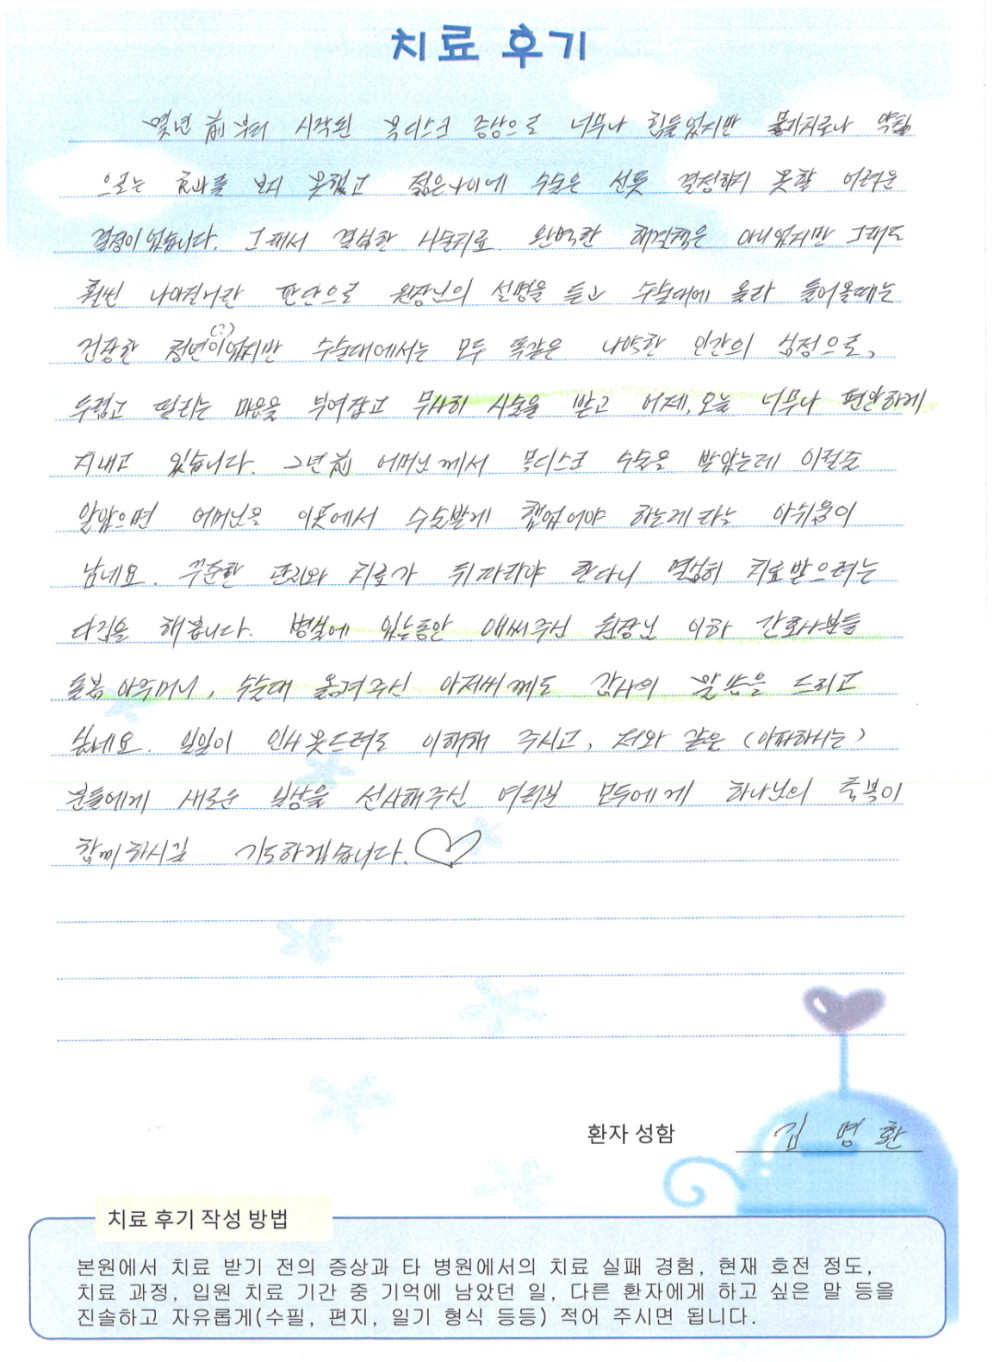 치료 후기
몇년 前부터 시작된 목디스크 증상으로 너무나 힘들었지만 물리치료나 약물
으로는 효과를 보지 못했고 젊은나이에 수술은 선뜻 결정하지 못할 어려운
결정이었습니다. 그래서 결심한 시술치료 완벽한 해결책은 아니었지만 그래도
훨씬 나아질거란 판단으로 원장님의 설명을 듣고 수술대에 올라 들어올때는
건장한 청년이(?)었지만 수술대에서는 모두 똑같은 나약한 인간의 심정으로,
두렵고 떨리는 마음을 부여잡고 무사히 시술을 받고 어제, 오늘 너무나 편안하게
지내고 있습니다. 2년前 어머니께서 목디스크 수술을 받았는데 이럴줄
알았으면 어머님을 이곳에서 수술받게 했었어야 하는데 라는 아쉬움이
남네요. 꾸준한 관리와 치료가 뒤따라야 한다니 열심히 치료받으려는
다짐을 해봅니다. 병실에 있는동안 애써주신 원장님 이하 간호사분들
돌봄 아주머니, 수술대 옮겨주신 아저씨께도 감사의 말씀을 드리고
싶네요. 일일이 인사못드려도 이해해 주시고, 저와 같은 (아파하시는)
분들에게 새로운 일상을 선사해주신 여러분 모두에게 하나님의 축복이
함께하시길 기도하겠습니다. ♡
환자 성함 김 명 환
치료 후기 작성 방법
본원에서 치료 받기 전의 증상과 타 병원에서의 치료 실패 경험, 현재 호전 정도,
치료 과정, 입원 치료 기간 중 기억에 남았던 일, 다른 환자에게 하고 싶은 말 등을
진솔하고 자유롭게(수필, 편지, 일기 형식 등등) 적어 주시면 됩니다.